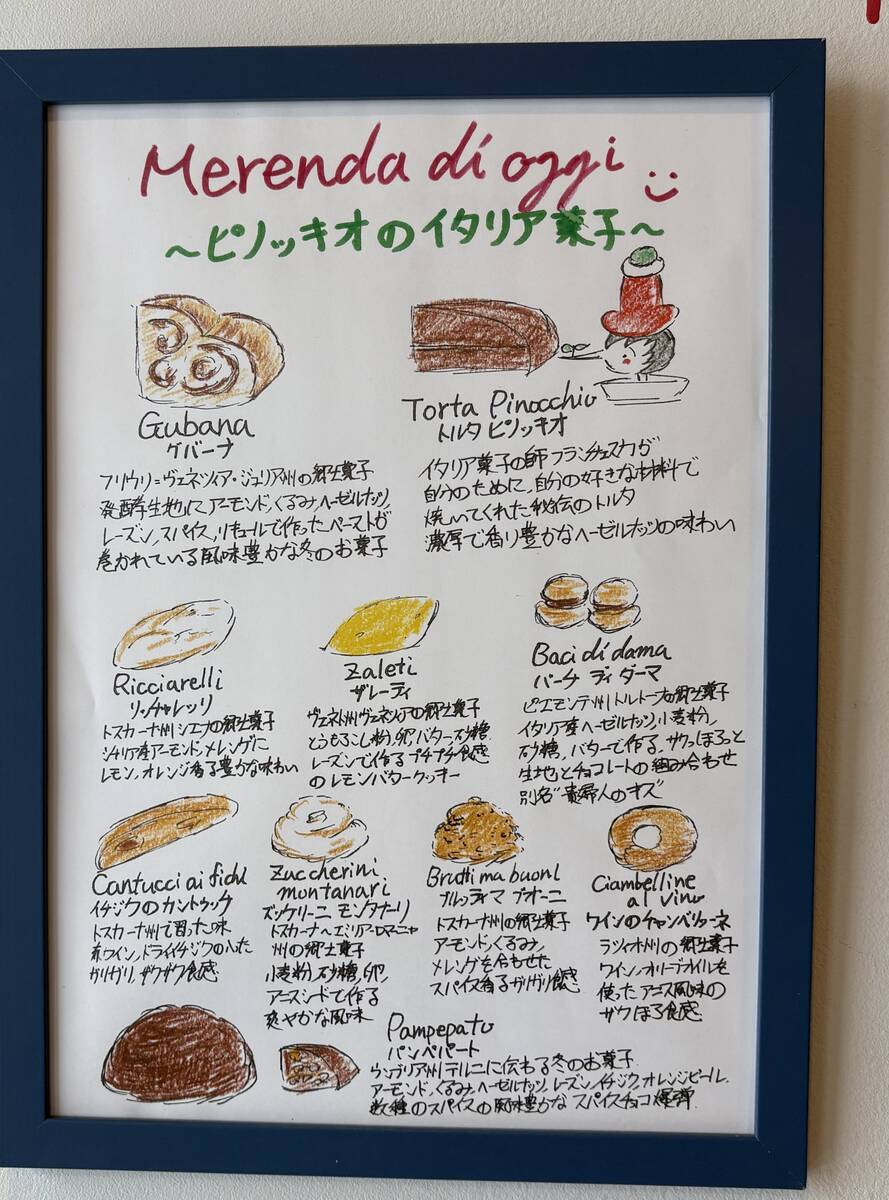 Merenda di oggi
~ピノッキオのイタリア菓子~
Gubana
グバーナ
フリウリ=ヴェネツィア・ジュリア州の郷土菓子
発酵生地にアーモンド、くるみ、ヘーゼルナッツ、
レーズン、スパイス、リキュールで作ったペーストが
巻かれている風味豊かな冬のお菓子
Torta Pinocchio
トルタ ピノッキオ
イタリア菓子の師フランチェスカが
自分のために、自分の好きな材料で
焼いてくれた秘伝のトルタ
濃厚で香り豊かなヘーゼルナッツの味わい
Ricciarelli
リッチャレッリ
トスカーナ州シエナの郷土菓子
シチリア産アーモンド、メレンゲに
レモン、オレンジ香る豊かな味わい
Zaleti
ザレーティ
ヴェネト州ヴェネツィアの郷土菓子
とうもろこし粉、卵、バター、砂糖、
レーズンで作るプチプチ食感
のレモンバタークッキー
Baci di dama
バーチ ディ ダーマ
ピエモンテ州トルトーナの郷土菓子
イタリア産ヘーゼルナッツ、小麦粉、
砂糖、バターで作る、サクっほろっと
生地とチョコレートの組み合わせ
別名"貴婦人のキズ"
Cantucci ai fichi
イチジクのカントゥッチ
トスカーナ州で習った味
赤ワイン、ドライイチジクの入った
ガリガリ、ザクザク食感
Zuccherini
montanari
ズッケリーニ モンタナーリ
トスカーナ~エミリア=ロマーニャ
州の郷土菓子
小麦粉、砂糖、卵、
アニスシードで作る
爽やかな風味
Brutti ma buoni
ブルッティ マ ブオーニ
トスカーナ州の郷土菓子
アーモンド、くるみ、
メレンゲを合わせた
スパイス香るガリガリ食感
Ciambelline
al vino
ワインのチャンベリーネ
ラツィオ州の郷土菓子
ワイン、オリーブオイルを
使ったアニス風味の
ザクほろ食感
Pampepato
パンペパート
ウンブリア州テルニに伝わる冬のお菓子
アーモンド、くるみ、ヘーゼルナッツ、レーズン、イチジク、オレンジピール、
数種のスパイスの風味豊かな スパイスチョコ爆弾